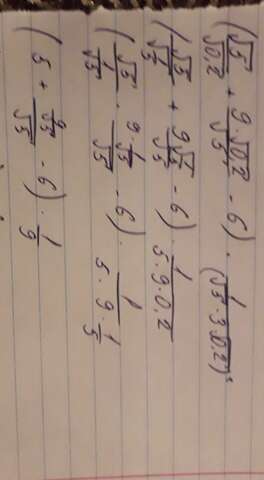 (√5/√0,2 + 9·√0,2/√5 - 6) · 1/(√5·3√0,2)²
(√5/√(1/5) + 9√(1/5)/√5 - 6) · 1/(5·9·0,2)
(√5/(1/√5) · (9·1/√5)/√5 - 6) · 1/(5·9·1/5)
(5 + (9/√5)/√5 - 6) · 1/9